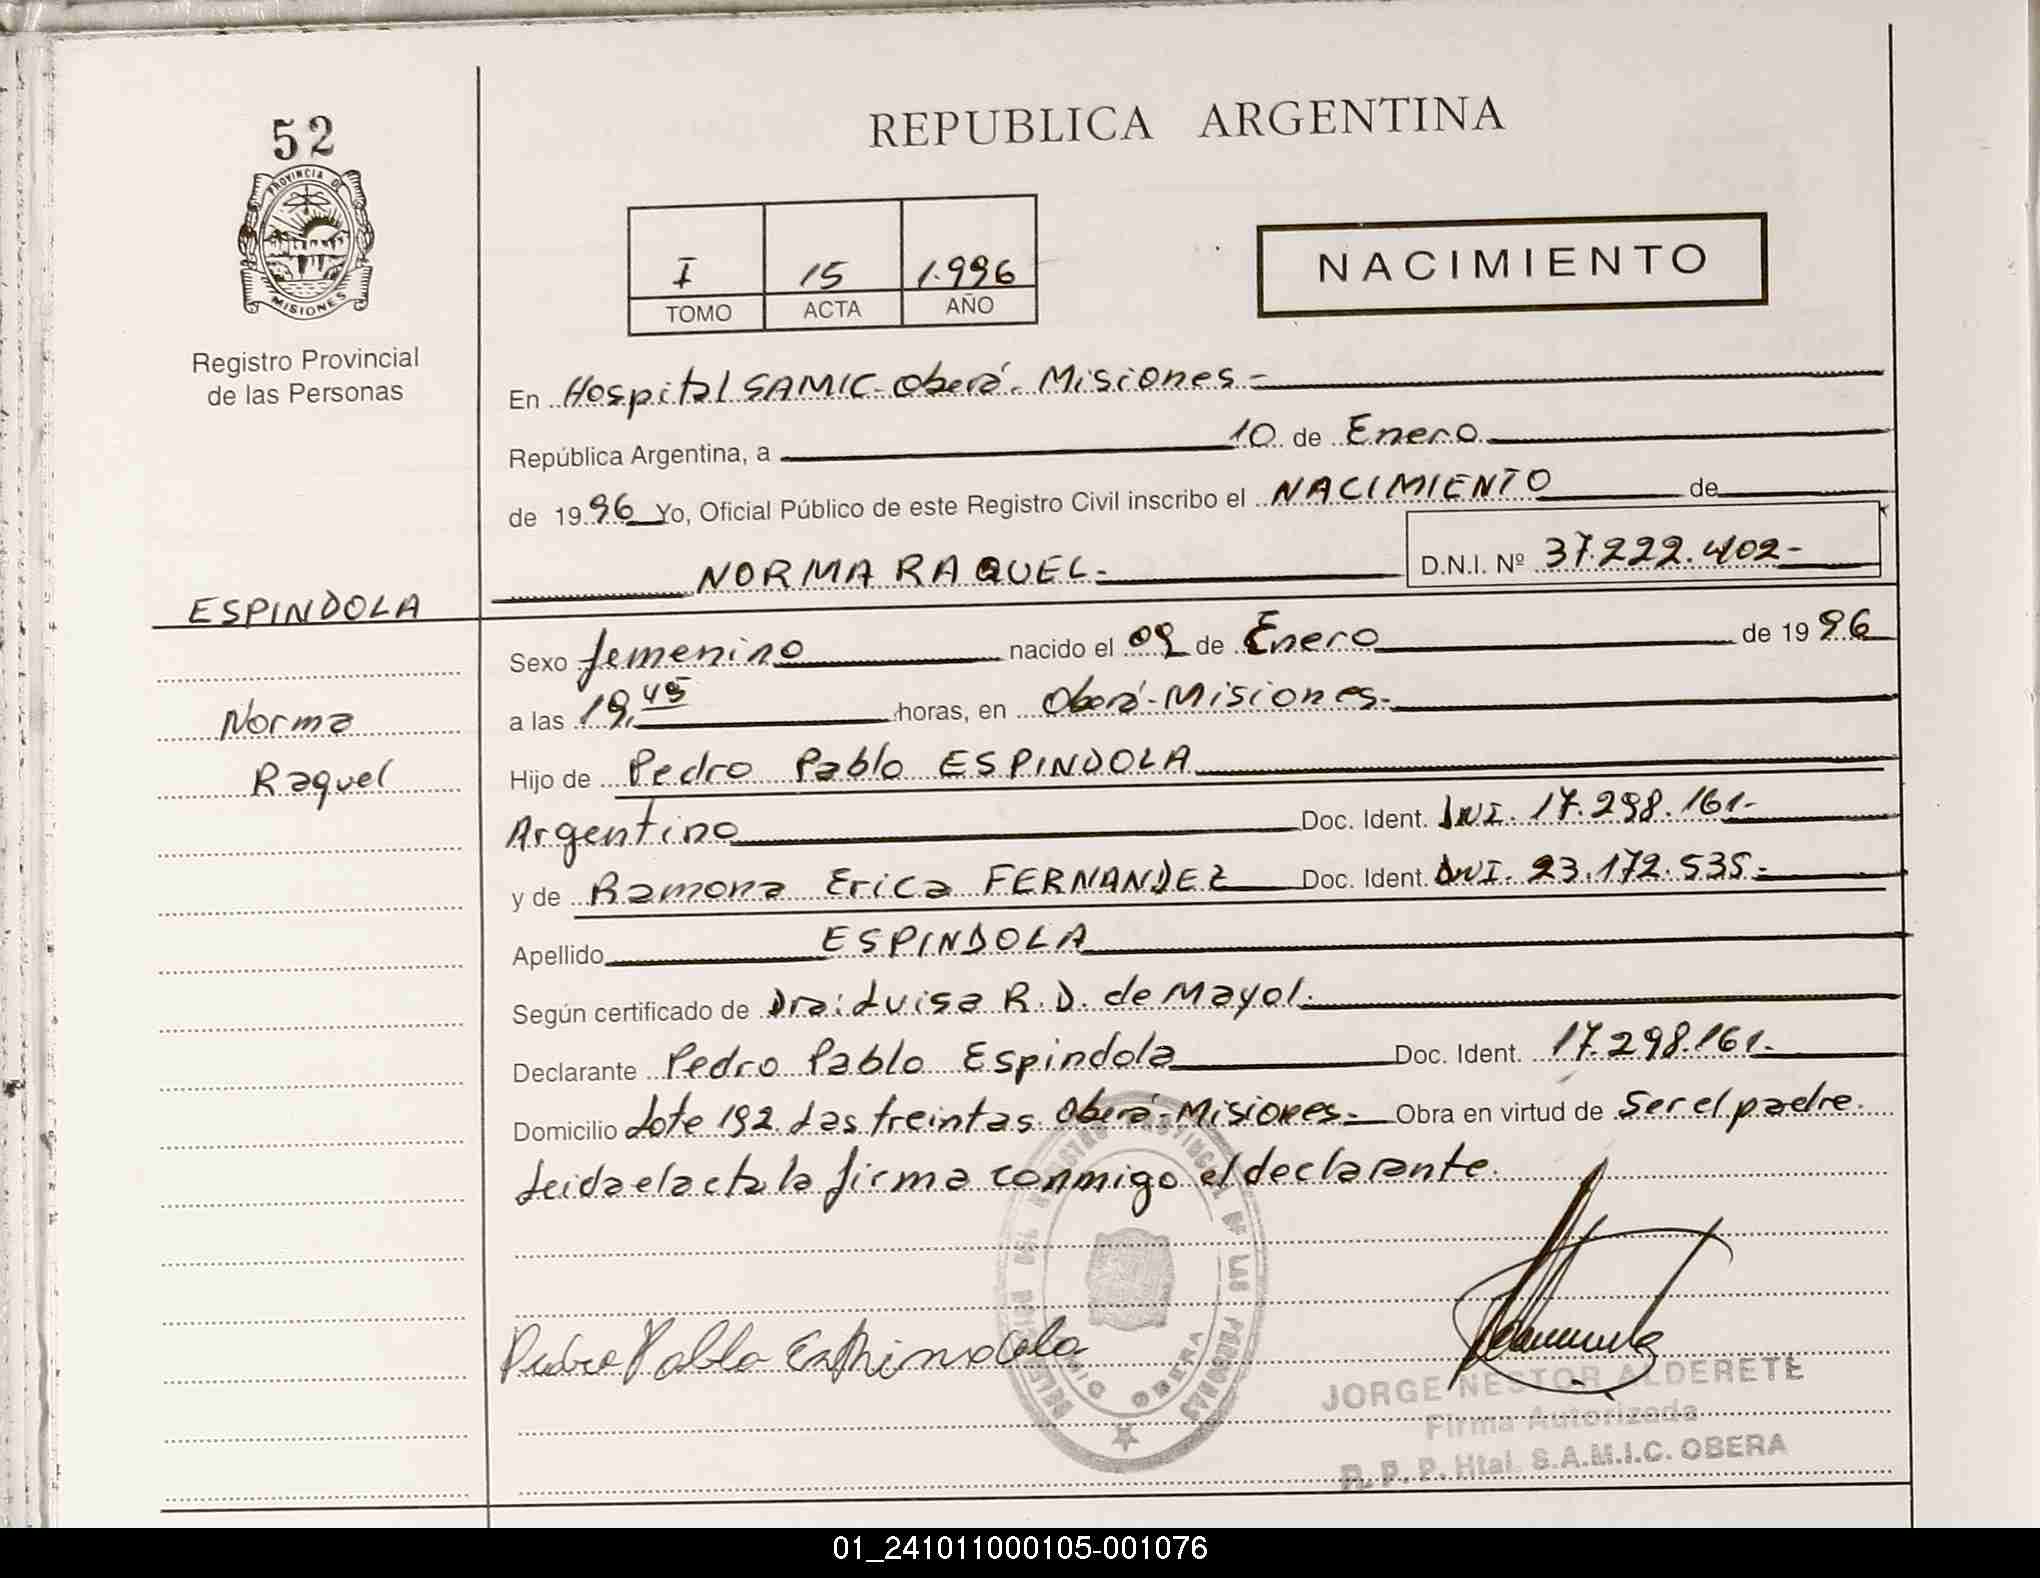 52
PROVINCIA DE
MISIONES
Registro Provincial
de las Personas
ESPINDOLA
Norma
Raquel
REPUBLICA ARGENTINA
I 15 1.996
TOMO ACTA AÑO
NACIMIENTO
En Hospital SAMIC - Oberá - Misiones -
República Argentina, a 10 de Enero
de 1996 Yo, Oficial Público de este Registro Civil inscribo el NACIMIENTO de
NORMA RAQUEL - D.N.I. Nº 37.222.402-
Sexo femenino nacido el 09 de Enero de 1996
a las 19,45 horas, en Oberá - Misiones -
Hijo de Pedro Pablo ESPINDOLA
Argentino Doc. Ident. DNI. 17.298.161-
y de Ramona Erica FERNANDEZ Doc. Ident. DNI. 23.172.535-
Apellido ESPINDOLA
Según certificado de Dra: Luisa R. D. de Mayol.
Declarante Pedro Pablo Espindola Doc. Ident. 17.298.161-
Domicilio Lote 192 Las treintas Oberá - Misiones - Obra en virtud de Ser el padre.
Leida el acta la firma conmigo el declarante.
Pedro Pablo Espindola
DE LAS PERSONAS
OBERA
JORGE NESTOR ALDERETE
Firma Autorizada
R. P. P. Htal. S.A.M.I.C. OBERA
01_241011000105-001076